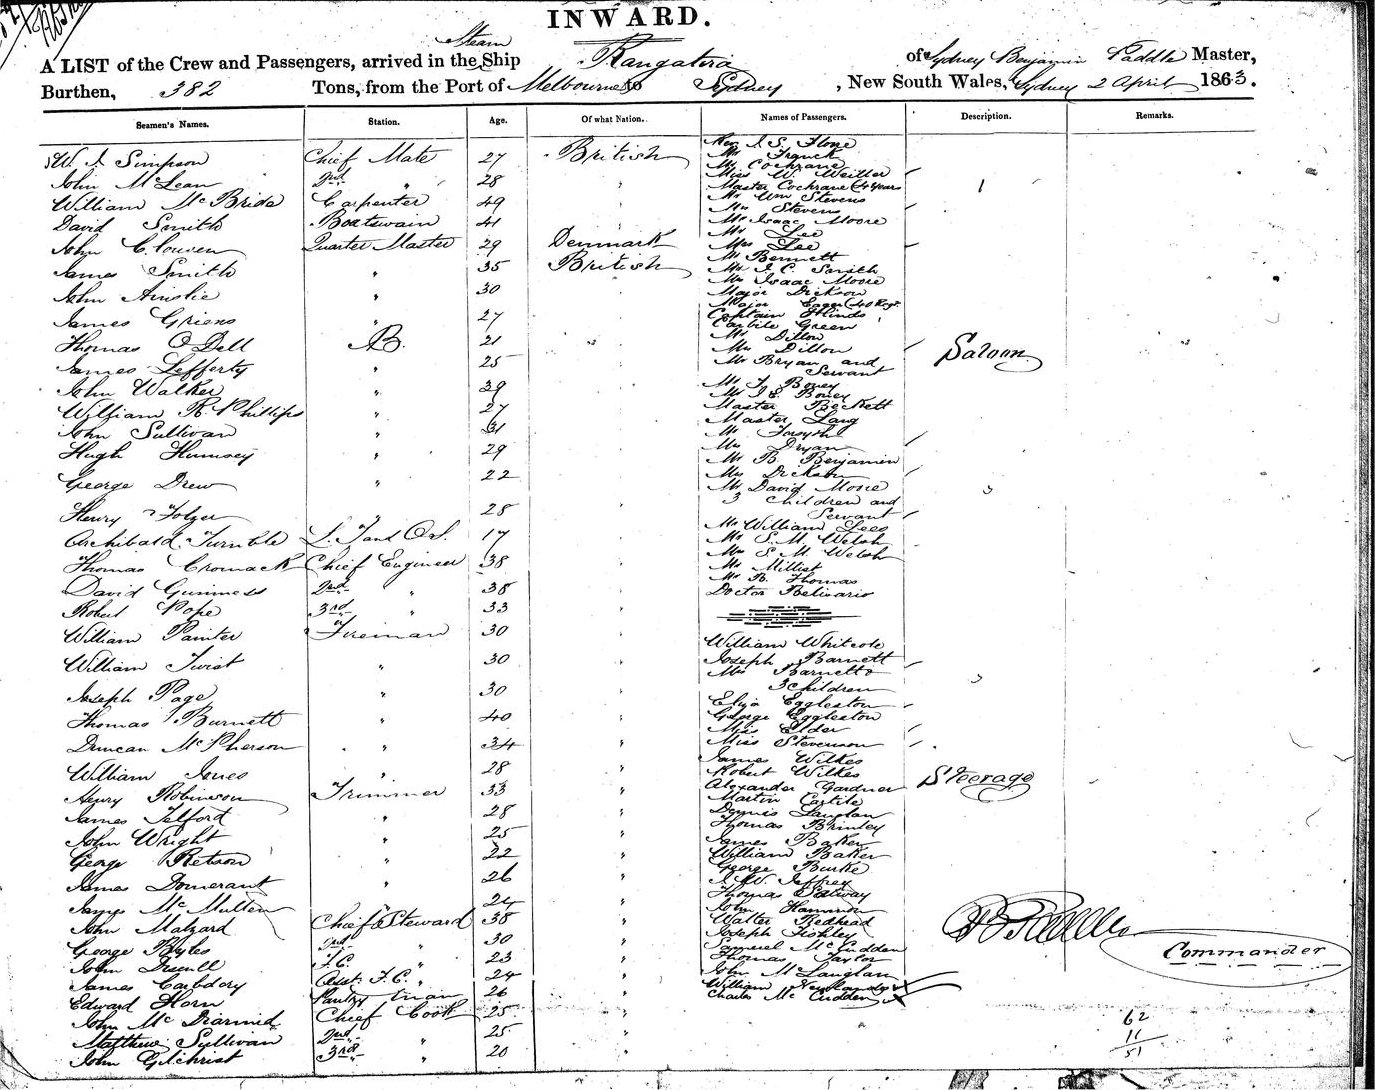 INWARD.
Steam
A LIST of the Crew and Passengers, arrived in the Ship Rangatira of Sydney Benjamin Paddle Master,
Burthen, 382 Tons, from the Port of Melbourne to Sydney , New South Wales, Sydney 2 April 1863.
Seamen's Names. Station. Age. Of what Nation. Names of Passengers. Description. Remarks.
W. I. Simpson Chief Mate 27 British
John McLean 2nd " 28 "
William McBride Carpenter 49 "
David Smith Boatswain 41 "
John Quarter Master 29 Denmark
James Smith " 35 British
John Ainslie " 30 "
James Griens " 27 "
Thomas O'Dell AB. 21 "
James Lefferty " 25 "
John Walker " 39 "
William R Phillips " 27 "
John Sullivan " 31 "
Hugh " 29 "
George Drew " 22 "
Henry Folger " 28 "
Archibald Turnble 17 "
Thomas Cromack Chief Engineer 38 "
David Guinness 2nd " 38 "
Robert Pope 3rd " 33 "
William Painter Fireman 30 "
William Twist " 30 "
Joseph Page " 30 "
Thomas Burnett " 40 "
Duncan McPherson " 34 "
William Jones " 28 "
Henry Robinson Trimmer 33 "
James Telford " 28 "
John Wright " 25 "
George Retson " 22 "
James " 26 "
James McMullen " 24 "
John Chief Steward 38 "
George 2nd " 30 "
John F.C. " 23 "
James Asst. F.C. " 24 "
Edward Horn Pantry man 26 "
John McDiarmid Chief Cook 25 "
Matthew Sullivan 2nd " 25 "
John Gilchrist 3rd " 20 "
Mr Cochrane
Miss W.
Master Cochrane (4 years
Mr Wm Stevens
Mrs Stevens
Mr Isaac Moore
Mr Lee
Mrs Lee
Mr Bennett
Mr J. C. Smith
Mr Isaac Moore
Major Dickson
Major Eager (40 Regt.
Captain Hinds
Green
Mr Dillon
Mrs Dillon
Mr Bryan and
Servant
Mr F. Boney
Boney
Master Beckett
Master Lang
Mr Forsyth
Mrs Dryon
Mr B. Benjamin
Mrs Dickson
Mr David
3 Children and
Servant
Mr William Lees
Mr S. M. Welsh
Mrs S. M. Welsh
Mr
Mr R. Thomas
Doctor Belinario
Saloon
William Whitcote
Joseph Barnett
Mrs Barnett &
3 children
Eliza Eggleston
George Eggleston
Miss Elder
Miss Stevenson
James Wilkes
Robert Wilkes
Alexander Gardner
Martin
Dennis
Thomas Brinley
James Baker
William Baker
George Burke
J. W. Jeffrey
Thomas
John
Walter Redhead
Joseph
Samuel McCudden
Thomas Taylor
John
William
Charles McCudden
Steerage
Commander
62
11
51